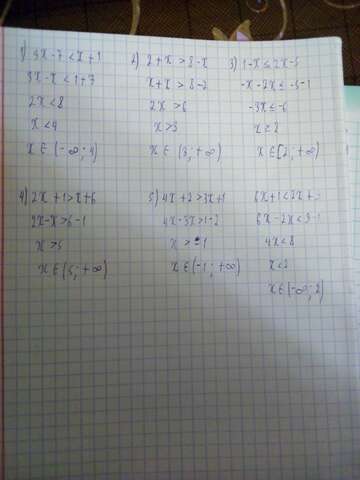 1) 3x-7<x+1
3x-x<1+7
2x<8
x<4
x∈(-∞;4)
2) 2+x>8-x
x+x>8-2
2x>6
x>3
x∈(3;+∞)
3) 1-x≤2x-5
-x-2x≤-5-1
-3x≤-6
x≥2
x∈[2;+∞)
4) 2x+1>x+6
2x-x>6-1
x>5
x∈(5;+∞)
5) 4x+2>3x+1
4x-3x>1-2
x>-1
x∈(-1;+∞)
6x+1<2x+
6x-2x<
4x<8
x<2
x∈(-∞;2)